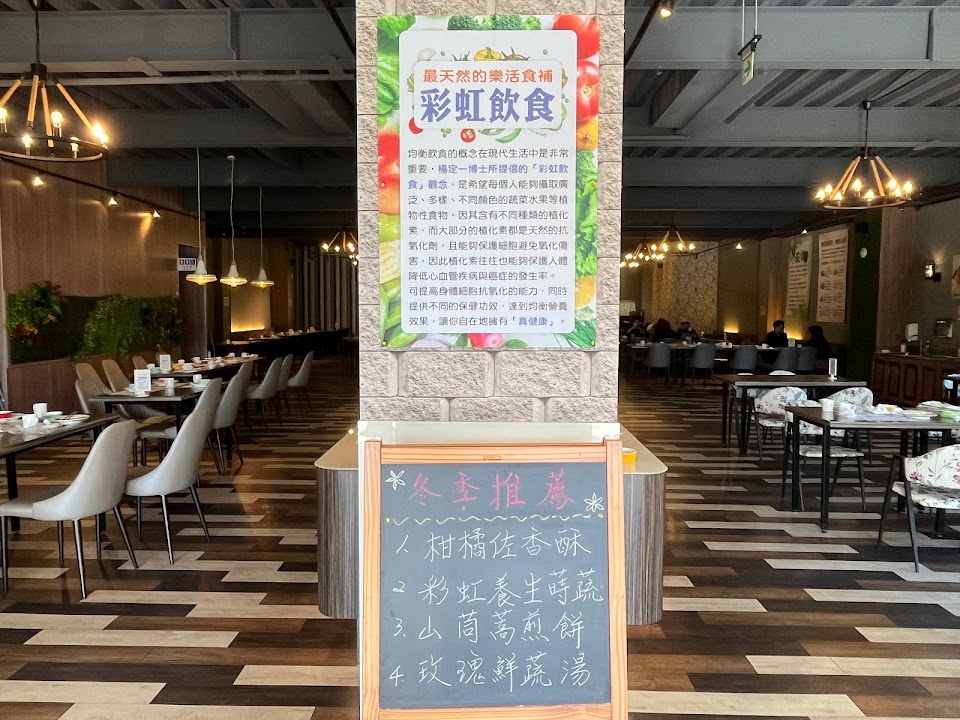 最天然的樂活食補
彩虹飲食
均衡飲食的概念在現代生活中是非常
重要，楊定一博士所提倡的「彩虹飲
食」觀念，是希望每個人能夠攝取廣
泛、多樣、不同顏色的蔬菜水果等植
物性食物，因其含有不同種類的植化
素，而大部分的植化素都是天然的抗
氧化劑，且能夠保護細胞避免氧化傷
害，因此植化素往往也能夠保護人體
降低心血管疾病與癌症的發生率。
可提高身體細胞抗氧化的能力，同時
提供不同的保健功效，達到均衡營養
效果，讓你自在地擁有「真健康」。
冬季推薦
1. 柑橘佐香酥
2 彩虹養生蒔蔬
3. 山茼蒿煎餅
4 玫瑰鮮蔬湯